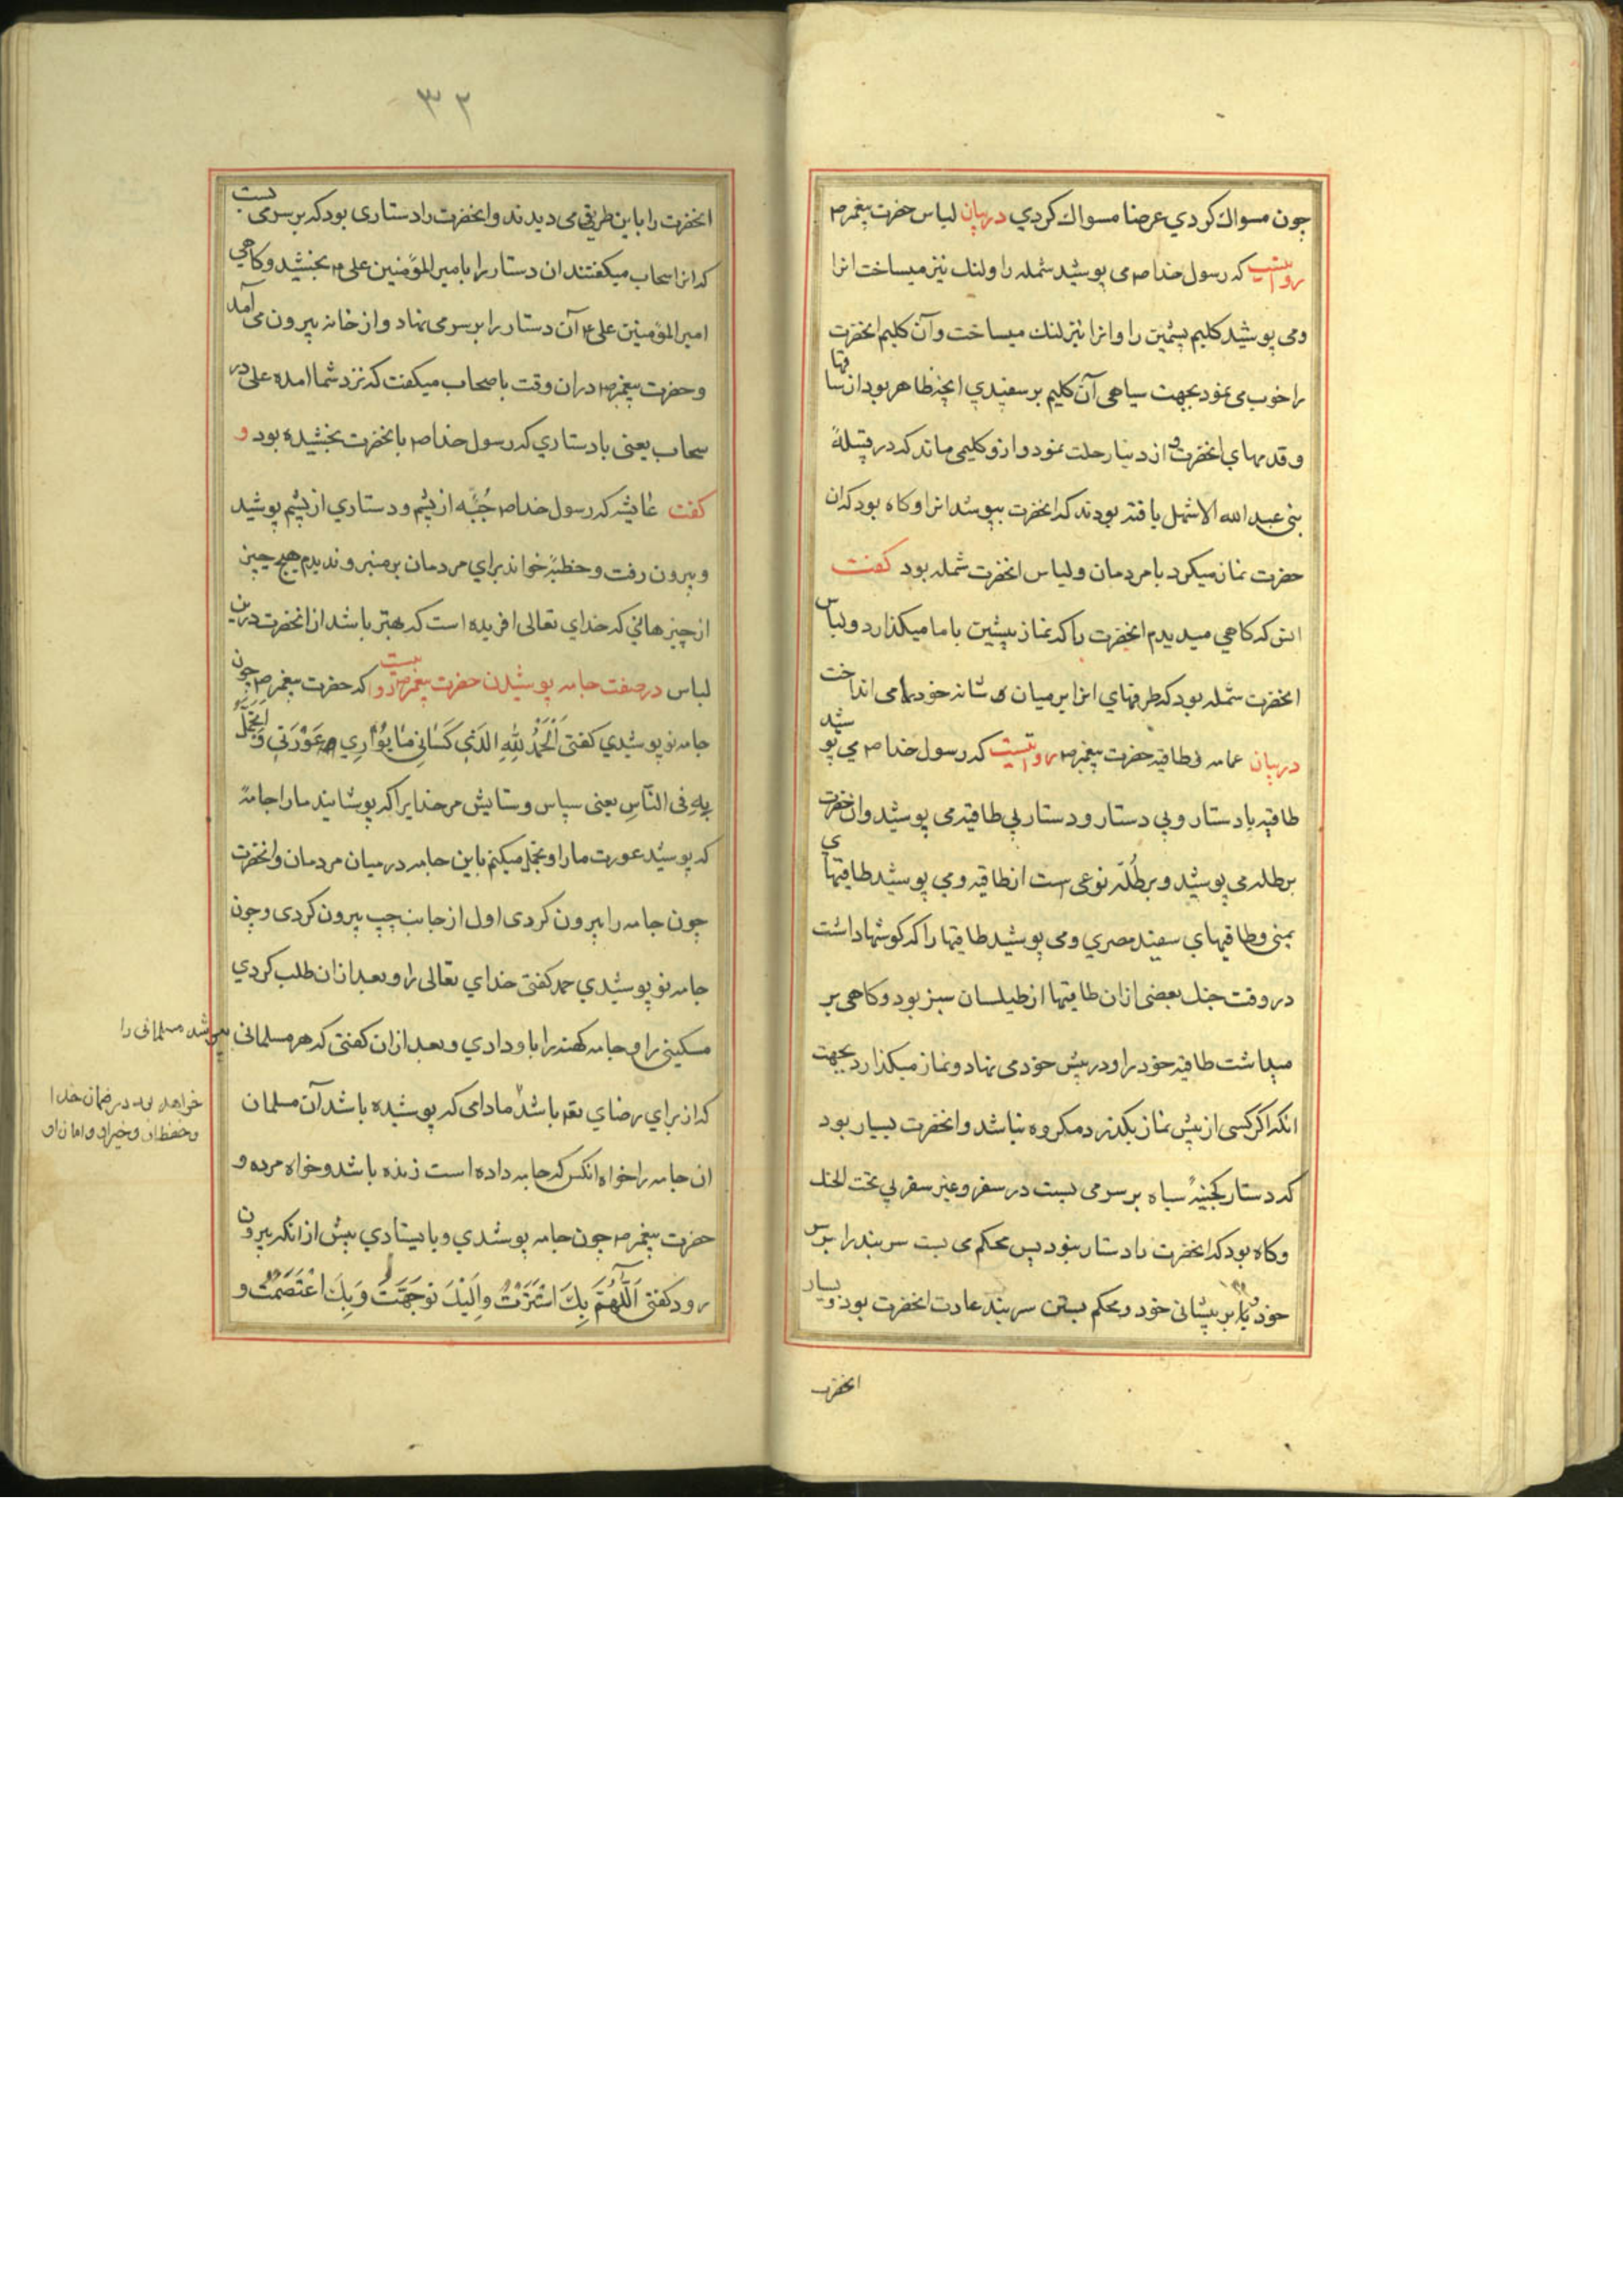 چون مسواک کردي عرضا مسواک کردي دربیان لباس حضرت پیغمبر ص
روایتست که رسول خدا ص می پوشید شمله را ولنک نیز میساخت انرا
ومی پوشید کلیم پشمین را وانرا نیز لنک میساخت وآن کلیم انحضرت
را خوب می نمود بجهت سیاهی آن کلیم بر سفیدي انچه ظاهر بود از ساقها
وقدمهاي انحضرت و از دنیا رحلت نمود وازو کلیمی ماند که در قبیلهٔ
بنی عبد الله الاشهل یافته بودند که انحضرت بپوشد انرا وکاه بود که ان
حضرت نماز میکرد با مردمان ولباس انحضرت شمله بود کفت
انس که کاهی میدیدم انحضرت را که نماز پیشین با ما میکذارد ولباس
انحضرت شمله بود که طرفهاي انرا بر میان شانه خود می انداخت
دربیان عمامه وطاقیه حضرت پیغمبر ص روایتست که رسول خدا ص می پوشید
طاقیه با دستار وبی دستار ودستار بی طاقیه می پوشید وان حضرت
برطله می پوشید وبرطُلّه نوعی است از طاقیه ومی پوشید طاقیهاي
یمنی وطاقیهاي سفید مصري ومی پوشید طاقیها را که کوشها داشت
در وقت جنک بعضی ازان طاقیها از طیلسان سبز بود وکاهی بر
میداشت طاقیه خود را ودر پیش خود می نهاد ونماز میکذارد بجهت
انکه اکر کسی از پیش نماز بکذرد مکروه نباشد وانحضرت بسیار بود
که دستار سیاه بر سر می بست در سفر وغیر سفر بی تحت الحنک
وکاه بود که انحضرت را دستار نبود پس محکم می بست سر بند را بر سر
خود یا بر پیشانی خود ومحکم بستن سر بند عادت انحضرت بود وبسیار
انحضرت
۳۲
انحضرت را باین طریق می دیدند وانحضرت را دستاری بود که بر سر می بست
که انرا سحاب میکفتند ان دستار را بامیر المؤمنین علی ع بخشید وکاهي
امیر المؤمنین علی ع آن دستار را بر سر می نهاد واز خانه بیرون می آمد
وحضرت پیغمبر ص دران وقت باصحاب میکفت که نزد شما امده علی در
سحاب یعنی با دستاري که رسول خدا ص بانحضرت بخشیده بود و
کفت عایشه که رسول خدا ص جُبّه از پشم ودستاري از پشم پوشید
وبیرون رفت وخطبهٔ خواند براي مردمان بر منبر وندیدم هیچ چیز
از چیزهائی که خداي تعالی افریده است که بهتر باشد از انحضرت درین
لباس در صفت جامه پوشیدن حضرت پیغمبر ص روایتست که حضرت پیغمبر ص چون
جامه نو پوشیدي کفتی اَلْحَمْدُ لِلّٰهِ الَّذِي كَسَانِي مَا يُوَارِي عَوْرَتِي وَاَتَجَمَّلُ
بِهِ فِى النَّاسِ یعنی سپاس وستایش مر خدایرا که پوشانید ما را جامهٔ
که پوشید عورت ما را وتجمل میکنم باین جامه در میان مردمان وانحضرت
چون جامه را بیرون کردی اول از جانب چپ بیرون کردی وچون
جامه نو پوشیدي حمد کفتی خداي تعالی را وبعد ازان طلب کردي
مسکینی را وجامه کهنه را باو دادي وبعد ازان کفتی که هر مسلمانی بپوشد مسلمانی را
که از براي رضاي تعه باشد مادامی که پوشیده باشد آن مسلمان
خواهد بود در ضمان خدا
وحفظ او وخیر او وامان او
ان جامه را خواه انکس که جامه داده است زنده باشد وخواه مرده و
حضرت پیغمبر ص چون جامه پوشیدي وبایستادي پیش از انکه بیرون
رود کفتی اَللّٰهُمَّ بِكَ اسْتَتَرْتُ وَاِلَيْكَ تَوَجَّهْتُ وَبِكَ اعْتَصَمْتُ و